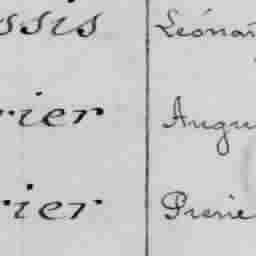 ssis Léona
rier Augu
rier Pierre